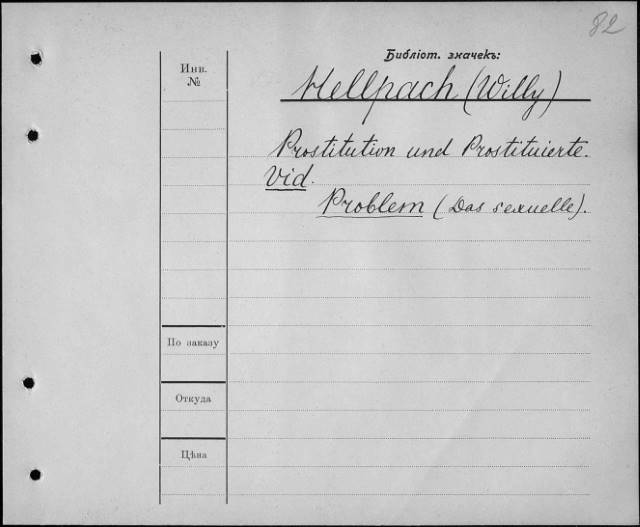 82
Библіот. значекъ:
Инв.
№
Hellpach (Willy)
Prostitution und Prostituierte.
Vid.
Problem (Das sexuelle).
По заказу
Откуда
Цѣна